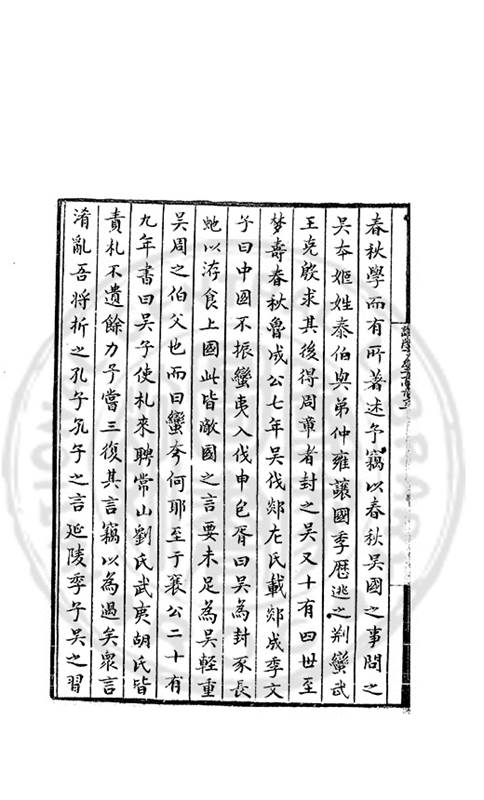 春秋學而有所著述予竊以春秋吳國之事問之
吳本姬姓泰伯與弟仲雍讓國季歷逃之荆蠻武
王克殷求其後得周章者封之吳又十有四世至
夢壽春秋魯成公七年吳伐郯左氏載郯成季文
子曰中國不振蠻夷入伐申包胥曰吳為封豕長
虵以洊食上國此皆敵國之言要未足為吳輕重
吳周之伯父也而曰蠻夸何耶至于襄公二十有
九年書曰吳子使札來聘常山劉氏武夷胡氏皆
責札不遺餘力予嘗三復其言竊以為過矣衆言
淆亂吾將折之孔子孔子之言延陵季子吳之習